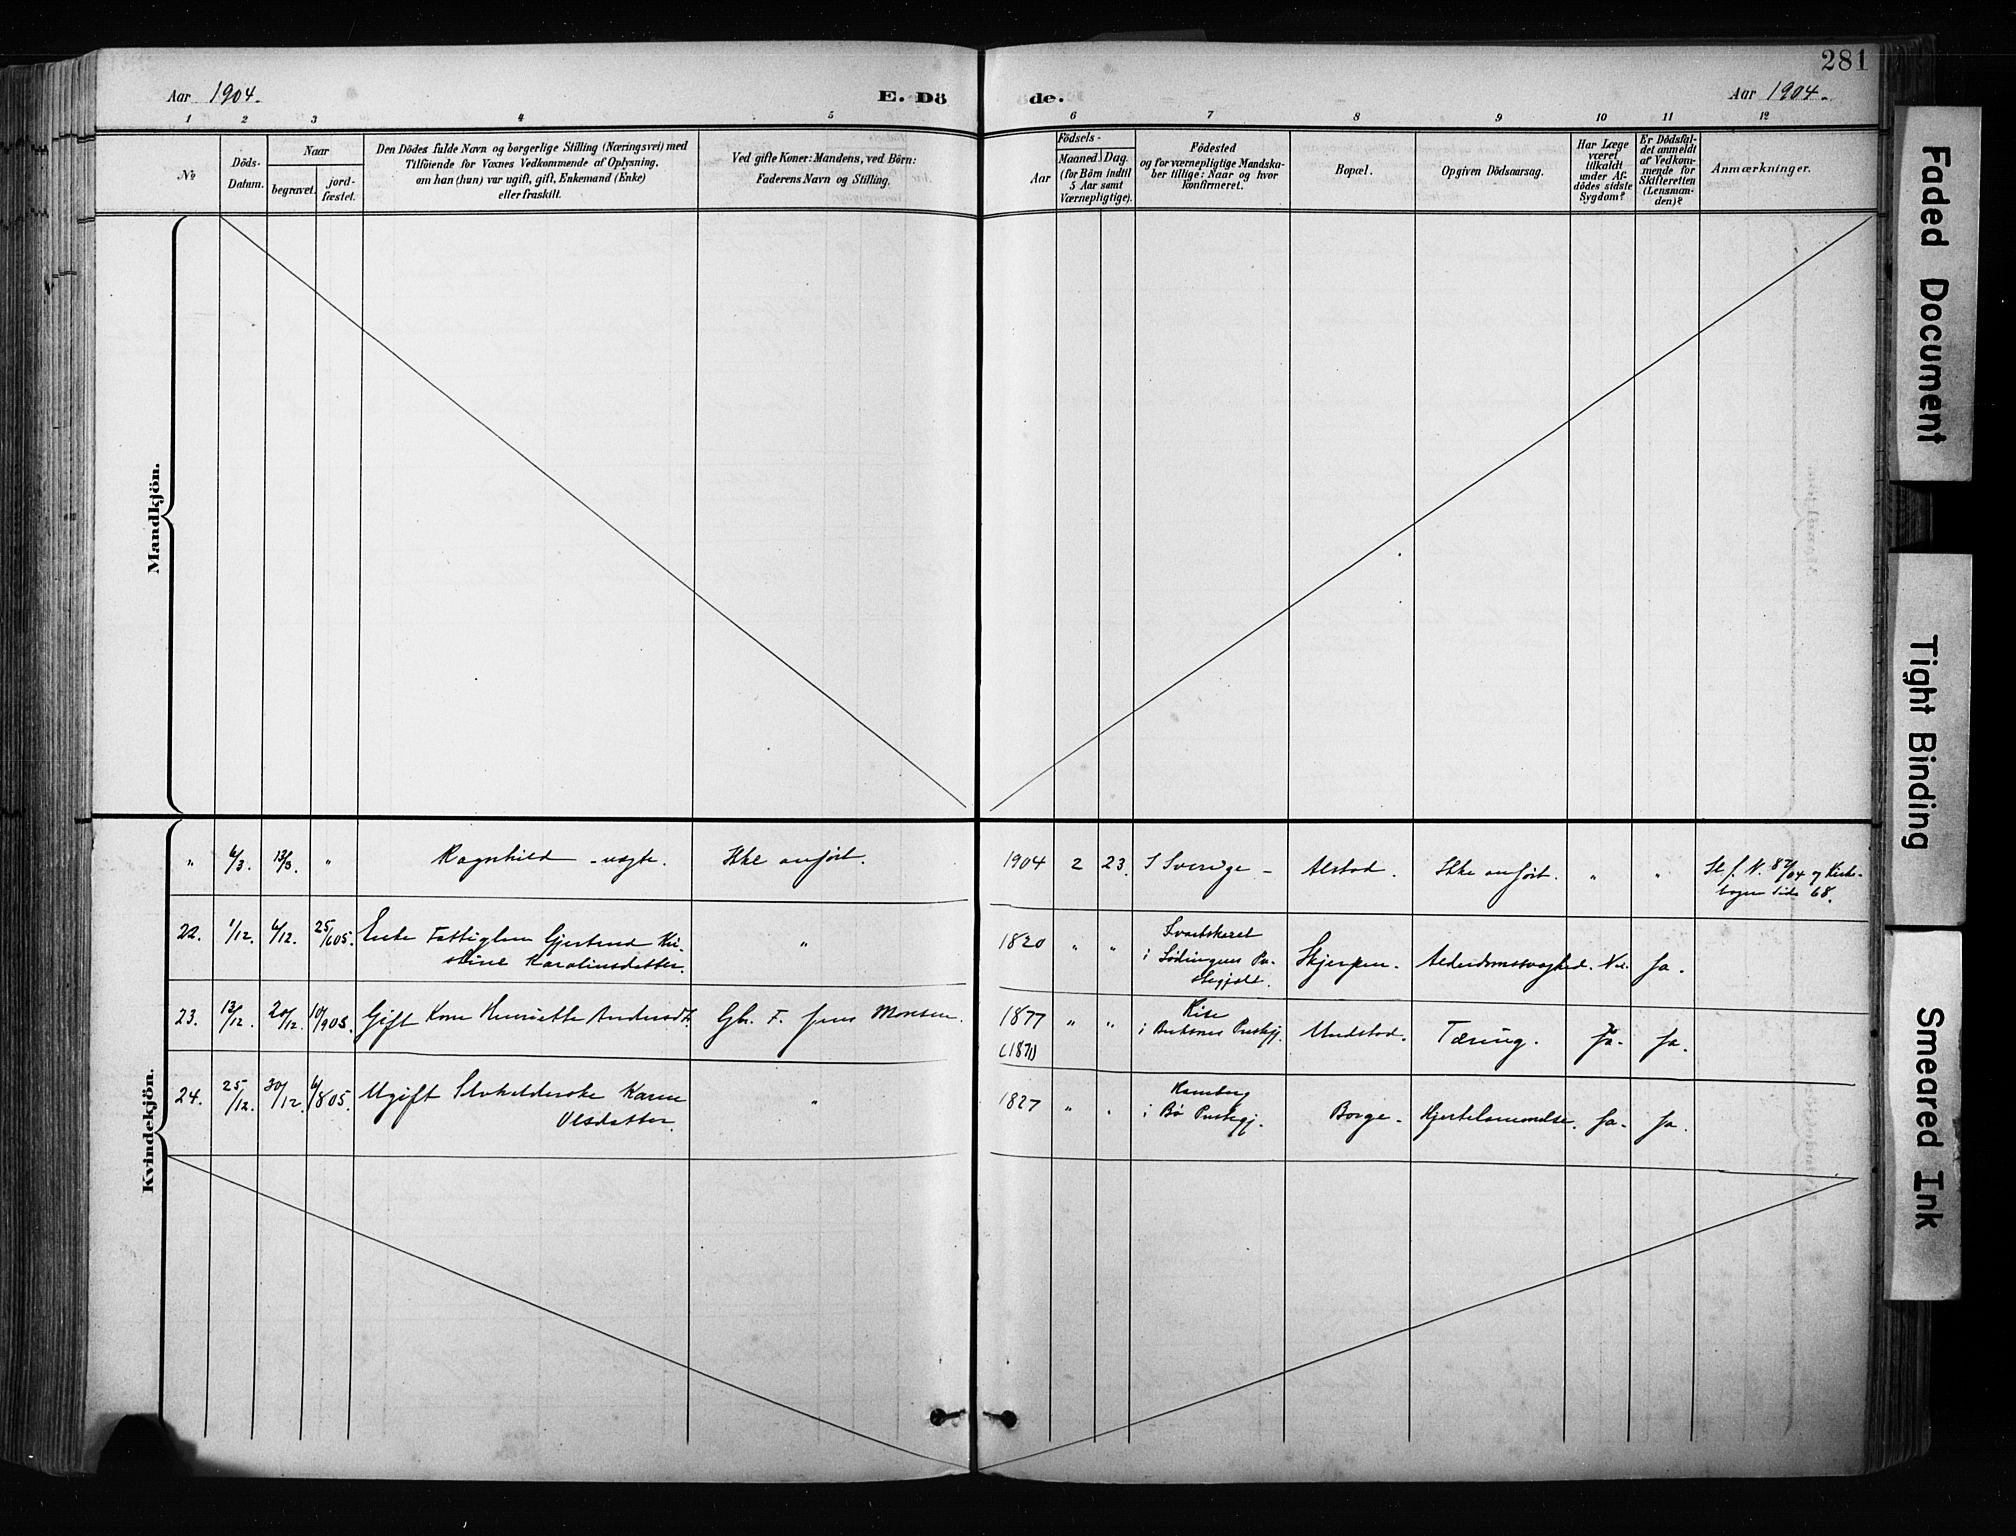 281
Aar 1904.
E. Dö
de.
Aar 1904.
1 2 3 4 5 6 7 8 9 10 11 12
No
Döds-
Datum.
Naar
begravet.
jord-
fæstet.
Den Dödes fulde Navn og borgerlige Stilling (Næringsvei) med
Tilföiende for Voxnes Vedkommende af Oplysning,
om han (hun) var ugift, gift, Enkemand (Enke)
eller fraskilt.
Ved gifte Koner: Mandens, ved Börn:
Faderens Navn og Stilling.
Födsels-
Aar
Maaned
Dag.
(for Börn indtil
5 Aar samt
Værnepligtige).
Födested
og for værnepligtige Mandska-
ber tillige: Naar og hvor
konfirmeret.
Bopæl.
Opgiven Dödsaarsag.
Har Læge
været
tilkaldt
under Af-
dödes sidste
Sygdom?
Er Dödsfal-
det anmeldt
af Vedkom-
mende for
Skifteretten
(Lensman-
den)?
Anmærkninger.
Mandkjön.
Kvindekjön.
" 6/3. 13/3. " Ragnhild - uægte. Ikke anfört. 1904 2 23. I Sverige - Alstad. Ikke anfört. " "
bogen Side 68.
22. 1/12. 6/12. 25/6 05. Enke Fattiglem Gjertrud Kri-
stine Karolinsdatter. " 1820 " " Svartskaret
i Lödingens Præ-
stegjeld. Skjerpen. Alderdomssvaghed. Nei. Ja.
23. 13/12. 20/12. 10/9 05. Gift Kone Henriette Andersdtr. Gbr. F. Jens Monsen. 1877 (1871) " "
i Buksnes Prestegj. Undstad. Tæring. Ja. Ja.
24. 25/12. 30/12. 6/8 05. Ugift Selvholderske Karen
Olsdatter. " 1827 " "
i Bö Prestegj. Borge. Hjertelammelse. Ja. Ja.
Faded Document
Tight Binding
Smeared Ink